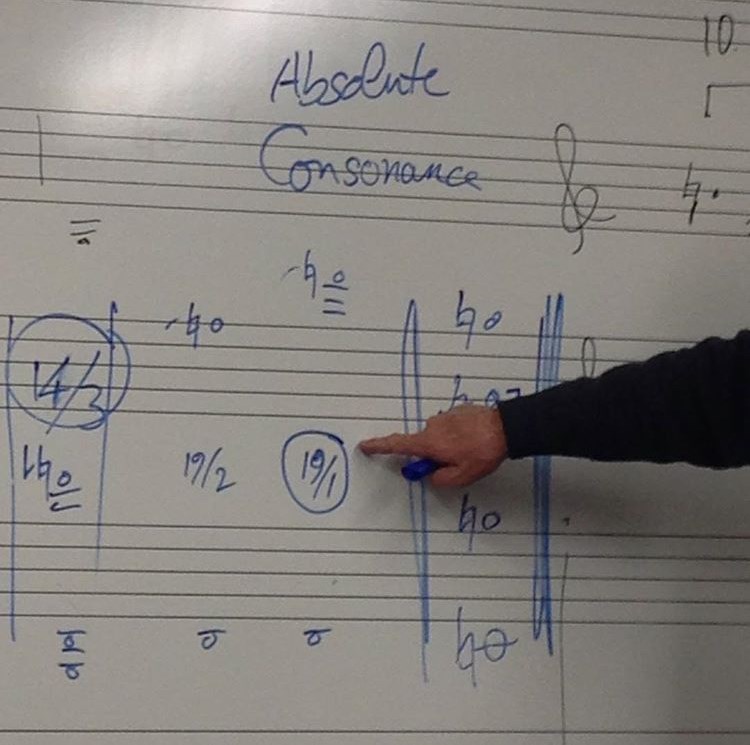 10
Absolute
Consonance
14/3
19/2
19/1